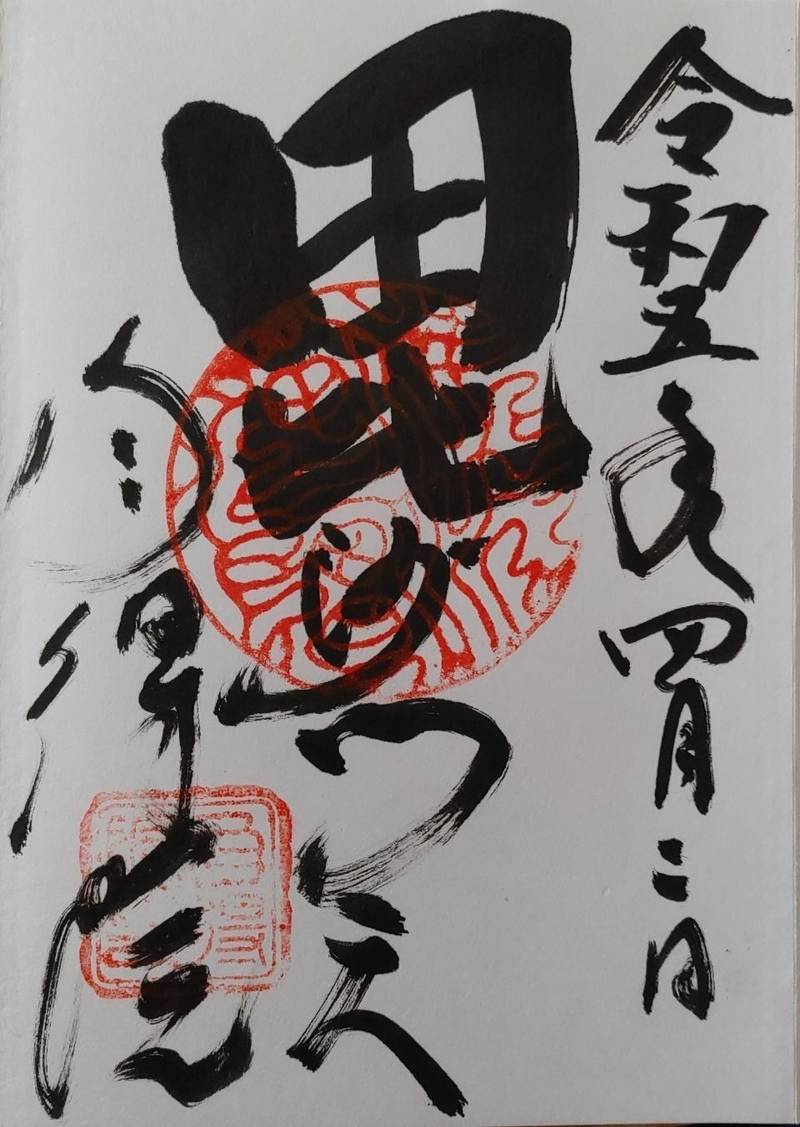 令和五年四月二日
毘沙門天
得院